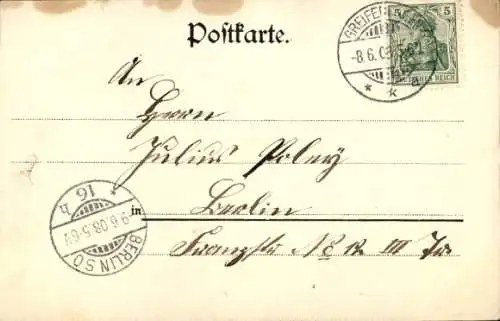 Postkarte.
5
-8.6.08
DEUTSCHES REICH
An
Herrn
Julius Poley
in Berlin
Franzstr No 12 III Tr.
BERLIN SO
9.6.08.5-6V
16 h